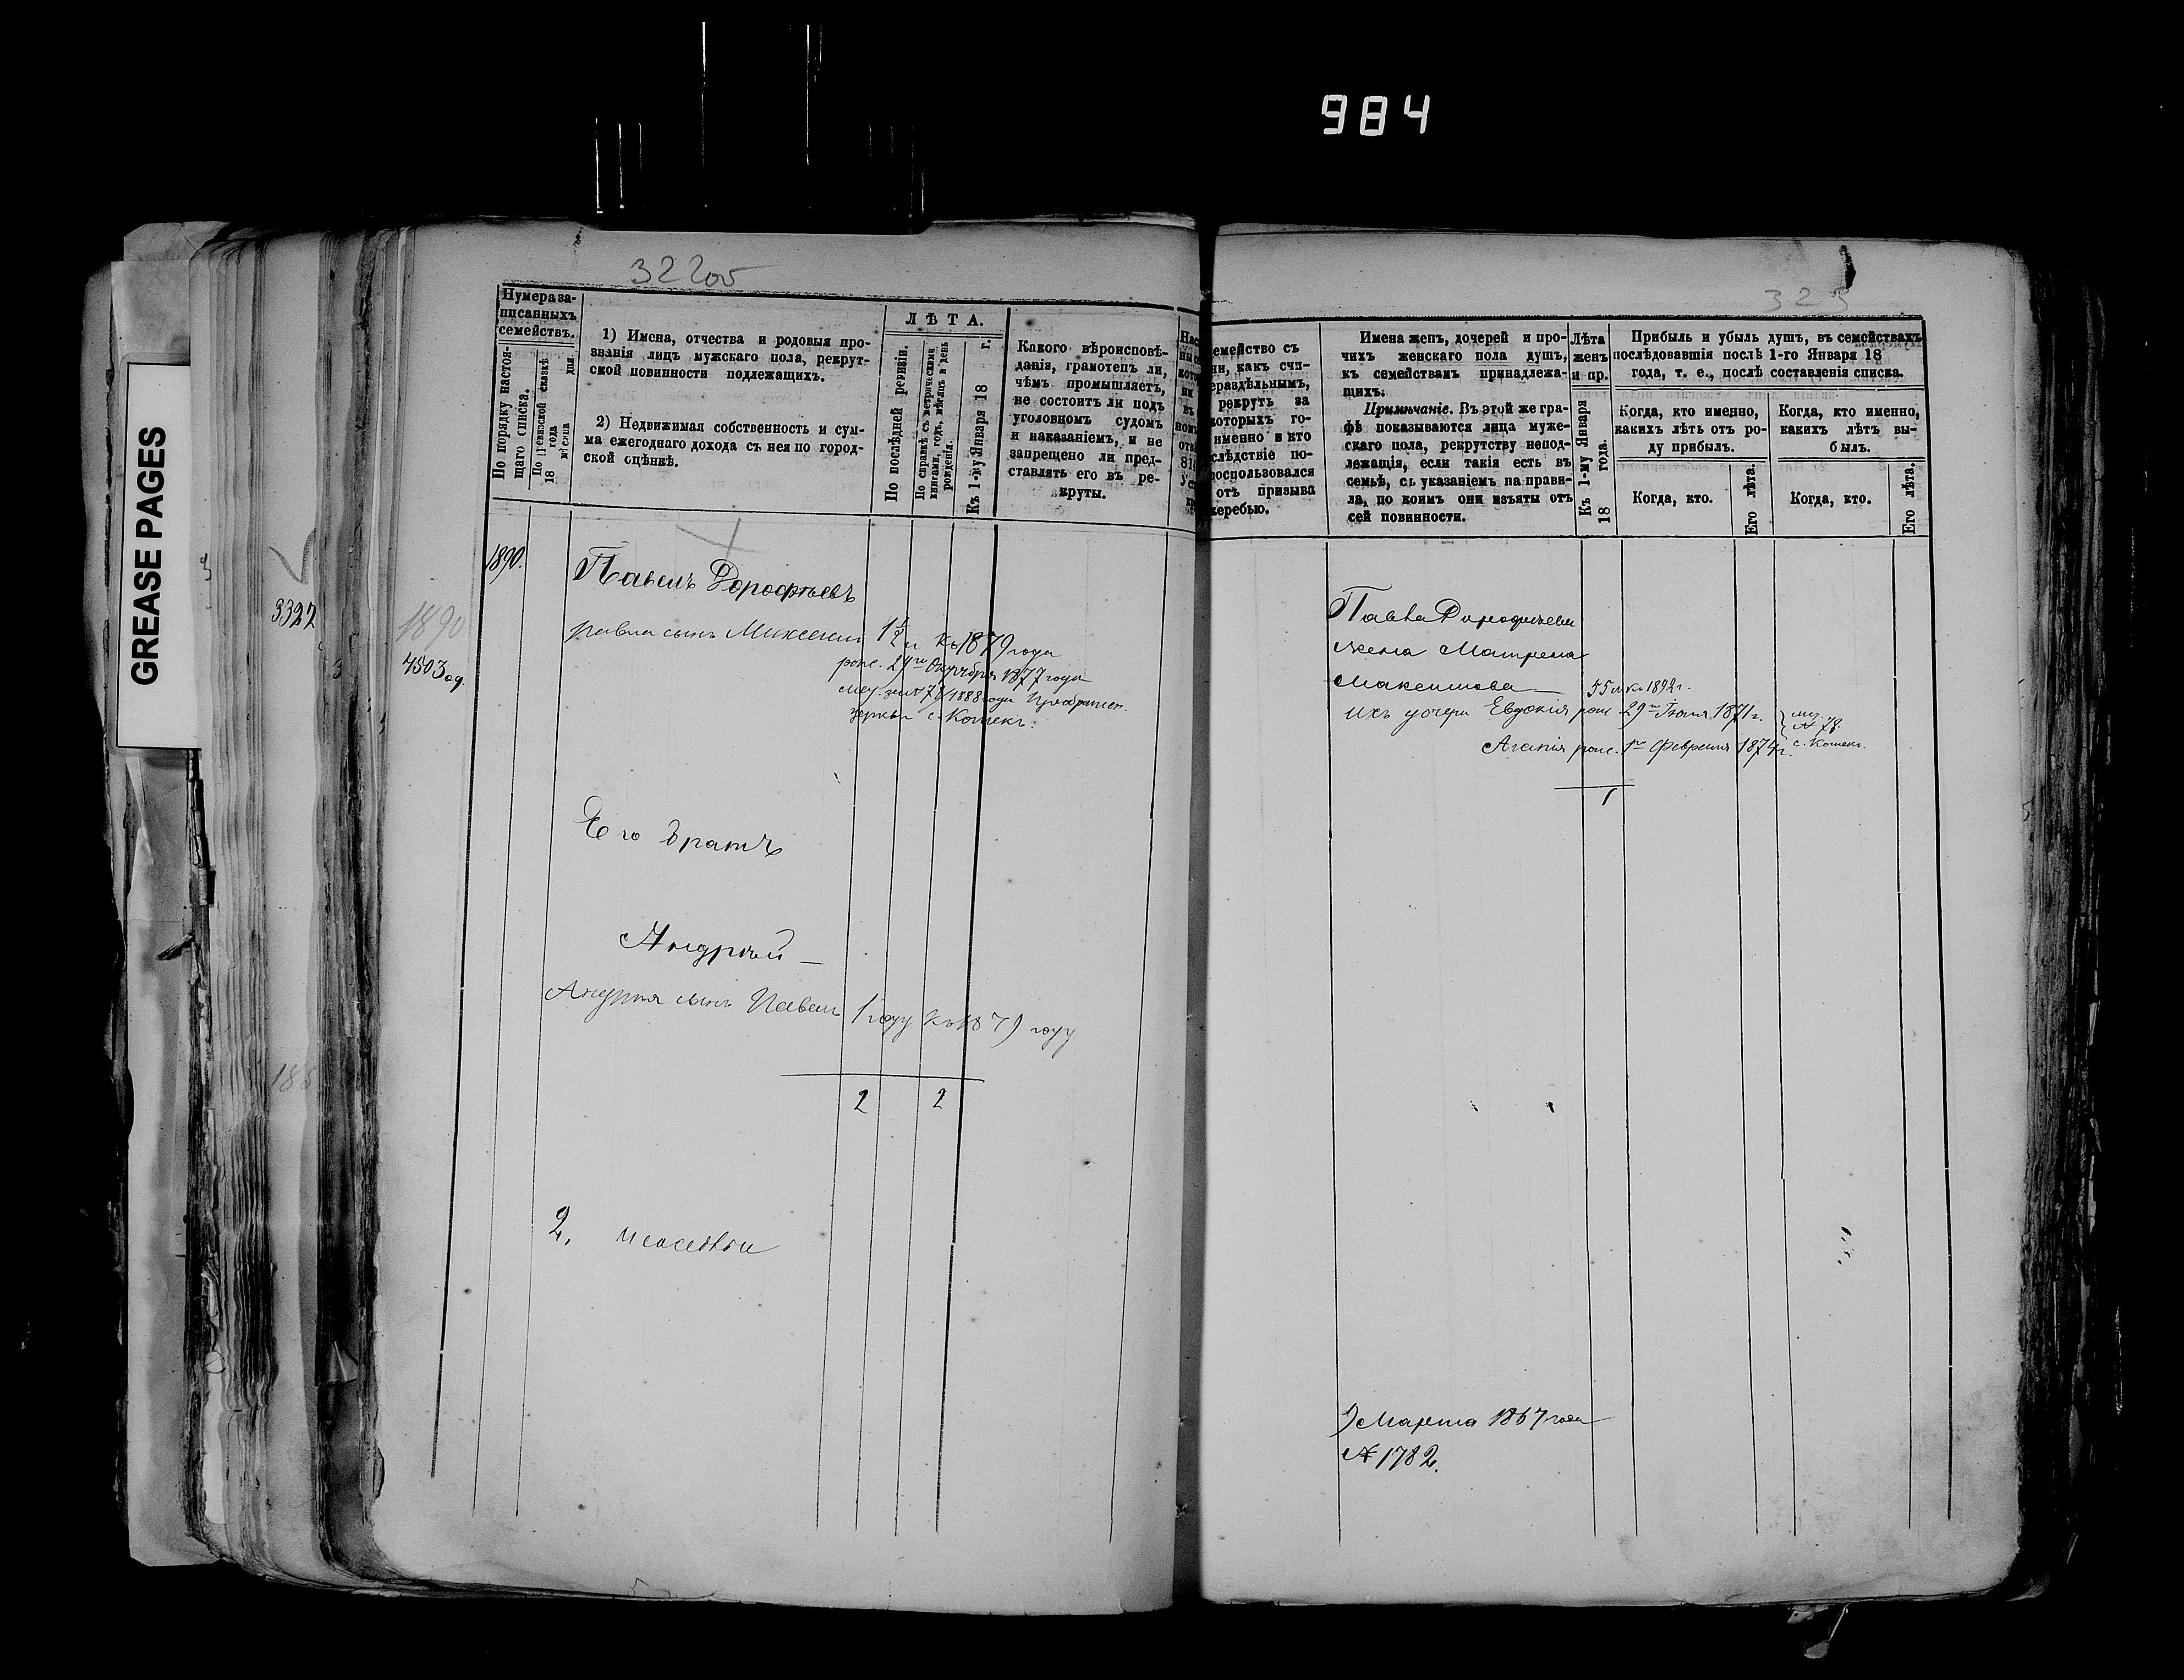 984
GREASE PAGES
322об
323
3322
1890
4503 од.
Нумера за-
писанныхъ
семействъ.
По порядку настоя-
щаго списка.
По ревизской сказкѣ
18 года
мѣсяца дня.
1) Имена, отчества и родовыя про-
званія лицъ мужскаго пола, рекрут-
ской повинности подлежащихъ.
2) Недвижимая собственность и сум-
ма ежегоднаго дохода съ нея по город-
ской оцѣнкѣ.
ЛѢТА.
По послѣдней ревизіи.
По справкѣ съ метрическими
книгами, годъ, мѣсяцъ и день
рожденія.
Къ 1-му Января 18 г.
Какого вѣроисповѣ-
данія, грамотенъ ли,
чѣмъ промышляетъ,
не состоитъ ли подъ
уголовномъ судомъ
и наказаніемъ, и не
запрещено ли пред-
ставлять его въ ре-
круты.
семейство съ
ни, какъ счи-
ераздѣльнымъ,
рекрутъ за
которыхъ го-
именно и кто
слѣдствіе по-
воспользовался
отъ призыва
жеребью.
Имена женъ, дочерей и про-
чихъ женскаго пола душъ,
къ семействамъ принадлежа-
щихъ.
Примѣчаніе. Въ этой же гра-
фѣ показываются лица муже-
скаго пола, рекрутству непод-
лежащія, если такія есть въ
семьѣ, съ указаніемъ на прави-
ла, по коимъ они изъяты отъ
сей повинности.
Лѣта
женъ
и пр.
Къ 1-му Января
18 года.
Прибыль и убыль душъ, въ семействахъ
послѣдовавшія послѣ 1-го Января 18
года, т. е., послѣ составленія списка.
Когда, кто именно,
какихъ лѣтъ отъ ро-
ду прибылъ.
Когда, кто именно,
какихъ лѣтъ вы-
былъ.
Когда, кто.
Его лѣта.
Когда, кто.
Его лѣта.
1890.
Павелъ Дорофѣевъ
Павла сынъ 1½ къ 1879 года
рожд. 29го Октября 1877 года
1888 года
церкви с. Кошекъ.
Его братъ
Андрѣй —
Андрѣя сынъ Павелъ 1 году къ 1879 году
2 2
2.
Павла Дорофѣева
жена Матрена
Максимова — 55 л. къ 1892 г.
ихъ дочери Евдокія рожд. 29го Іюля 1871 г.
Агапія рожд. 1го Февраля 1874 г.
№ 78.
с. Кошекъ.
1
Марта 1867 года
№ 1782.